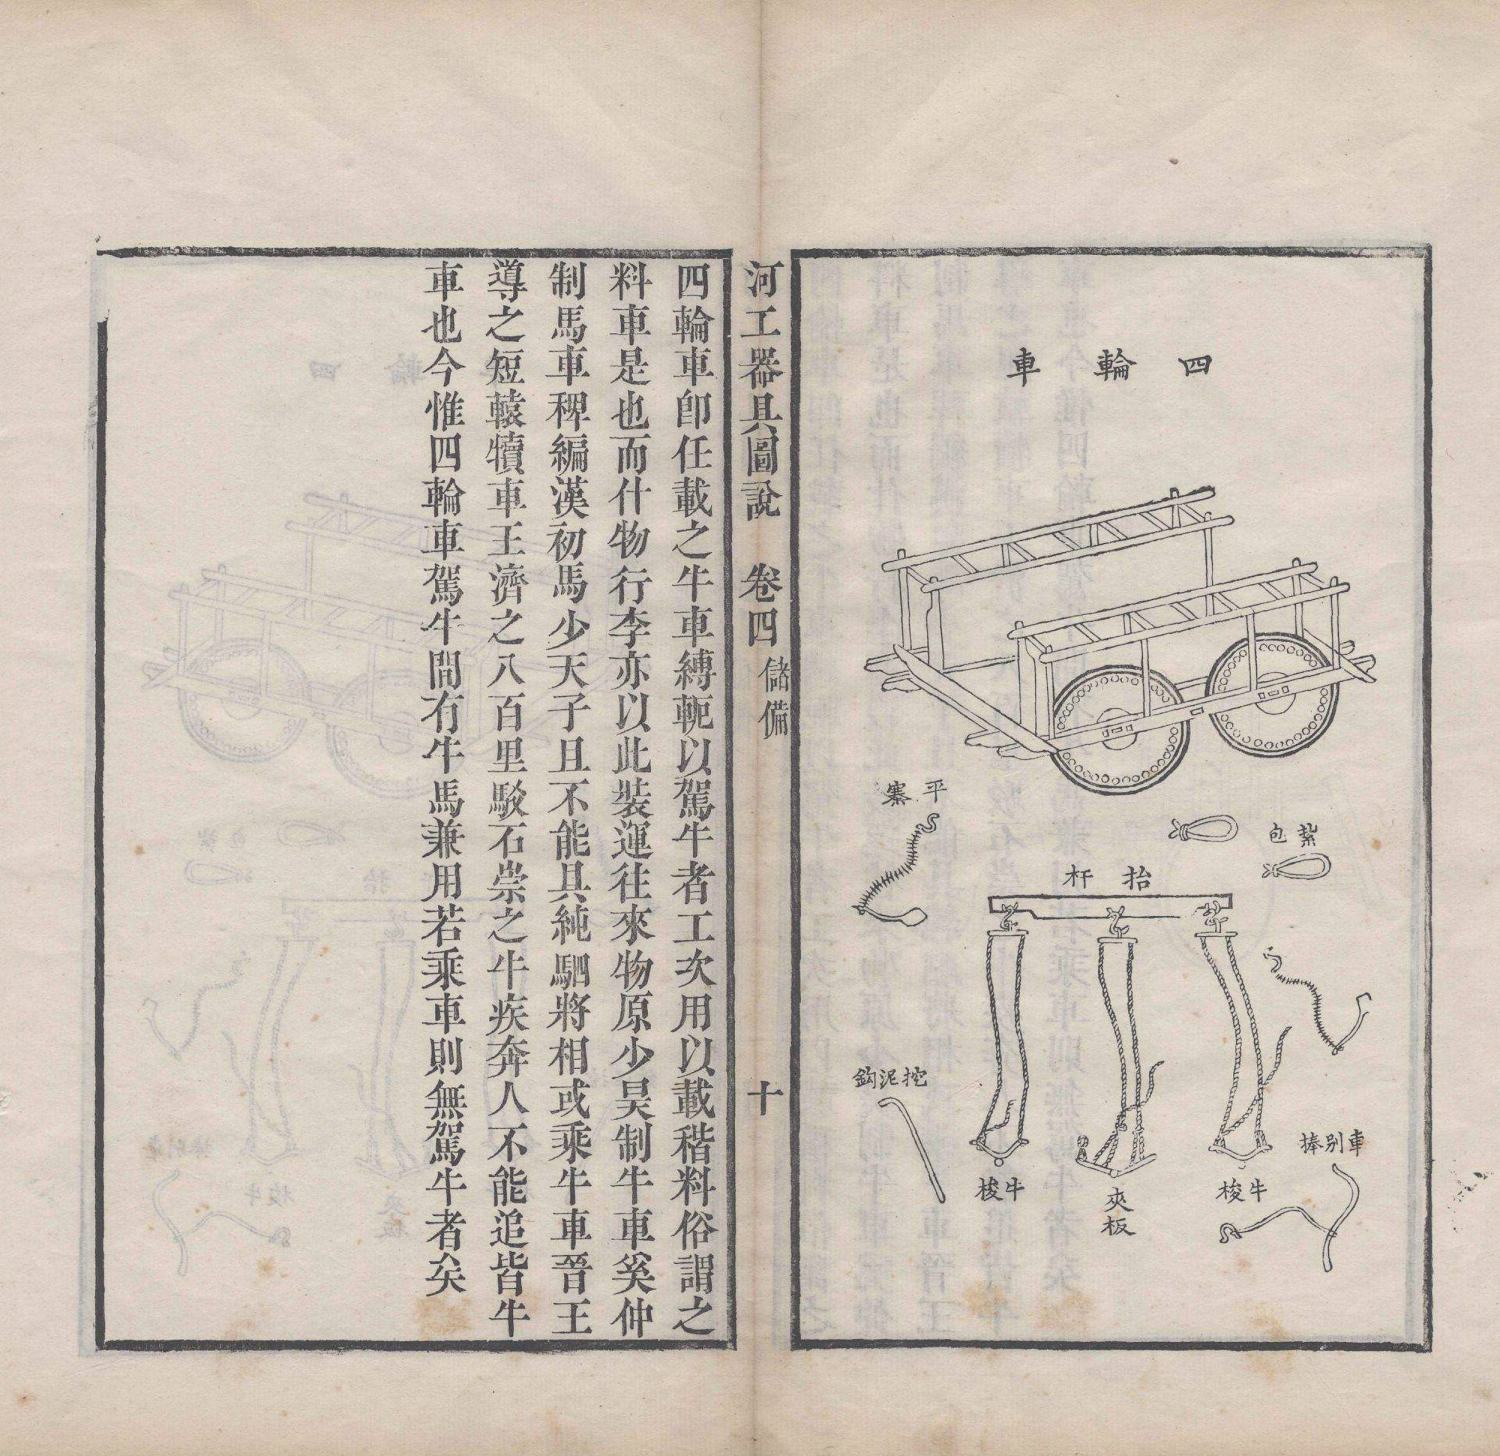 四輪車
平騫
紮包
抬杆
挖泥鈎
車別棒
牛梭
夾板
牛梭
河工器具圖說 卷四 儲備 十
四輪車卽任載之牛車縛軛以駕牛者工次用以載稭料俗謂之
料車是也而什物行李亦以此裝運往來物原少昊制牛車奚仲
制馬車稗編漢初馬少天子且不能具純駟將相或乘牛車晉王
導之短轅犢車王濟之八百里駁石崇之牛疾奔人不能追皆牛
車也今惟四輪車駕牛間有牛馬兼用若乘車則無駕牛者矣